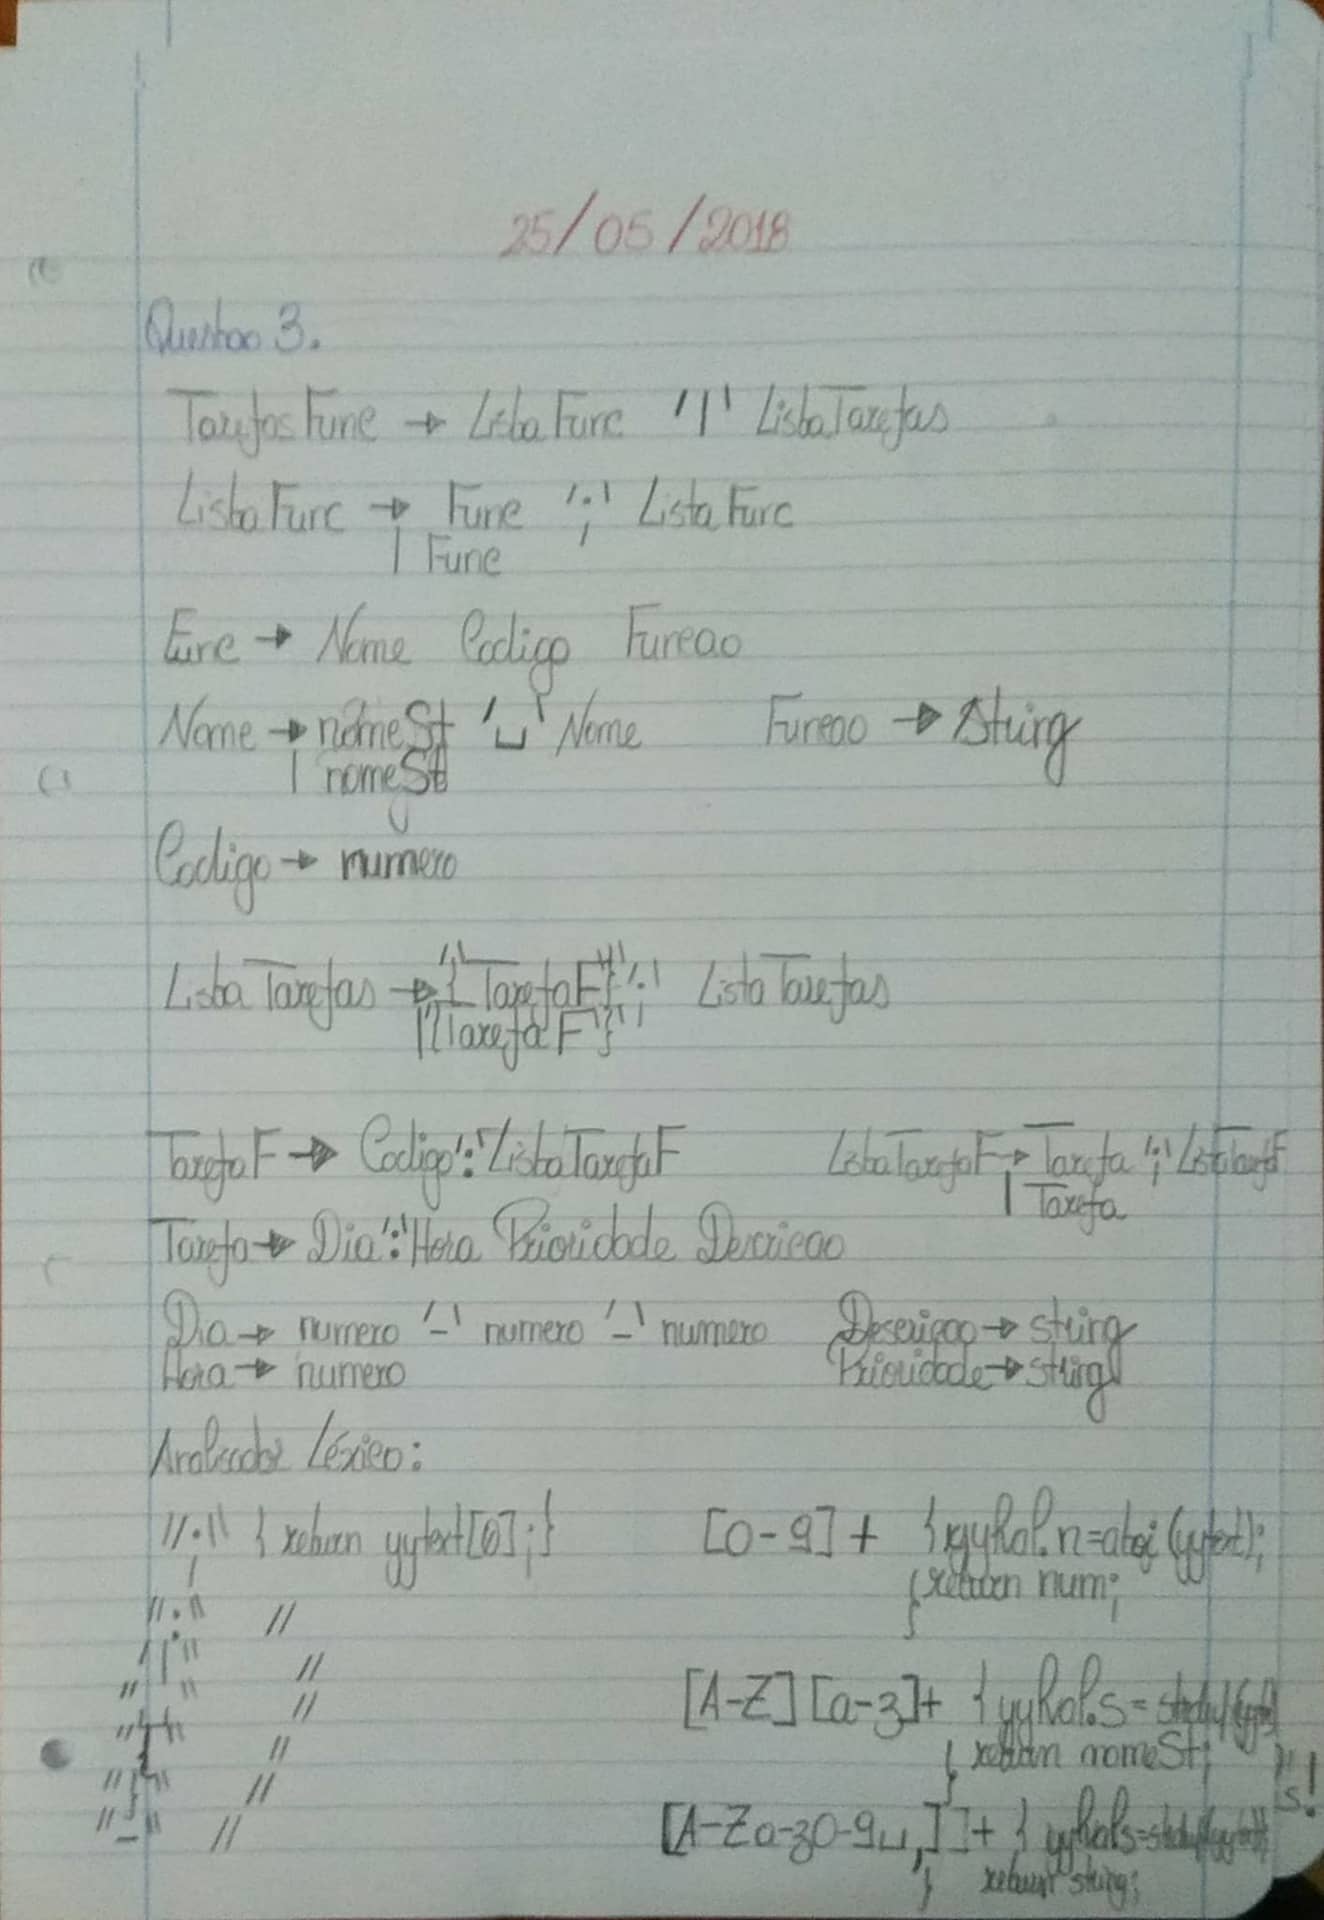 25/05/2018
Questao 3.
TarefasFunc → ListaFunc '|' ListaTarefas
ListaFunc → Func ';' ListaFunc
| Func
Func → Nome Codigo Funcao
Nome → nomeSt '␣' Nome Funcao → String
| nomeSt
Codigo → numero
ListaTarefas → '{' TarefaF '}' ';' ListaTarefas
| '{' TarefaF '}'
TarefaF → Codigo ':' ListaTarefaF ListaTarefaF → Tarefa ';' ListaTarefaF
| Tarefa
Tarefa → Dia ':' Hora Prioridade Descricao
Dia → numero '-' numero '-' numero Descriçao → string
Hora → numero Prioridade → string
Analisador Léxico:
";" { return yytext[0]; } [0-9]+ { yylval.n=atoi(yytext);
return num; }
":" //
"|" //
" " //
"{" //
"}" //
"-" //
[A-Z][a-z]+ { yylval.s=strdup(yytext)
return nomeSt; }
[A-Za-z0-9␣,]+ { yylval.s=strdup(yytext)
return string; }